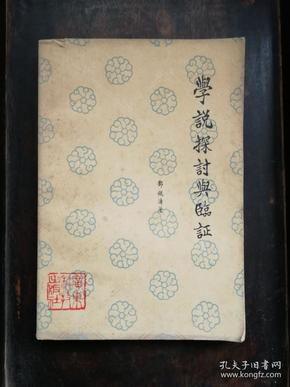 學説探討與臨証
孔夫子旧书网
book.kongfz.com